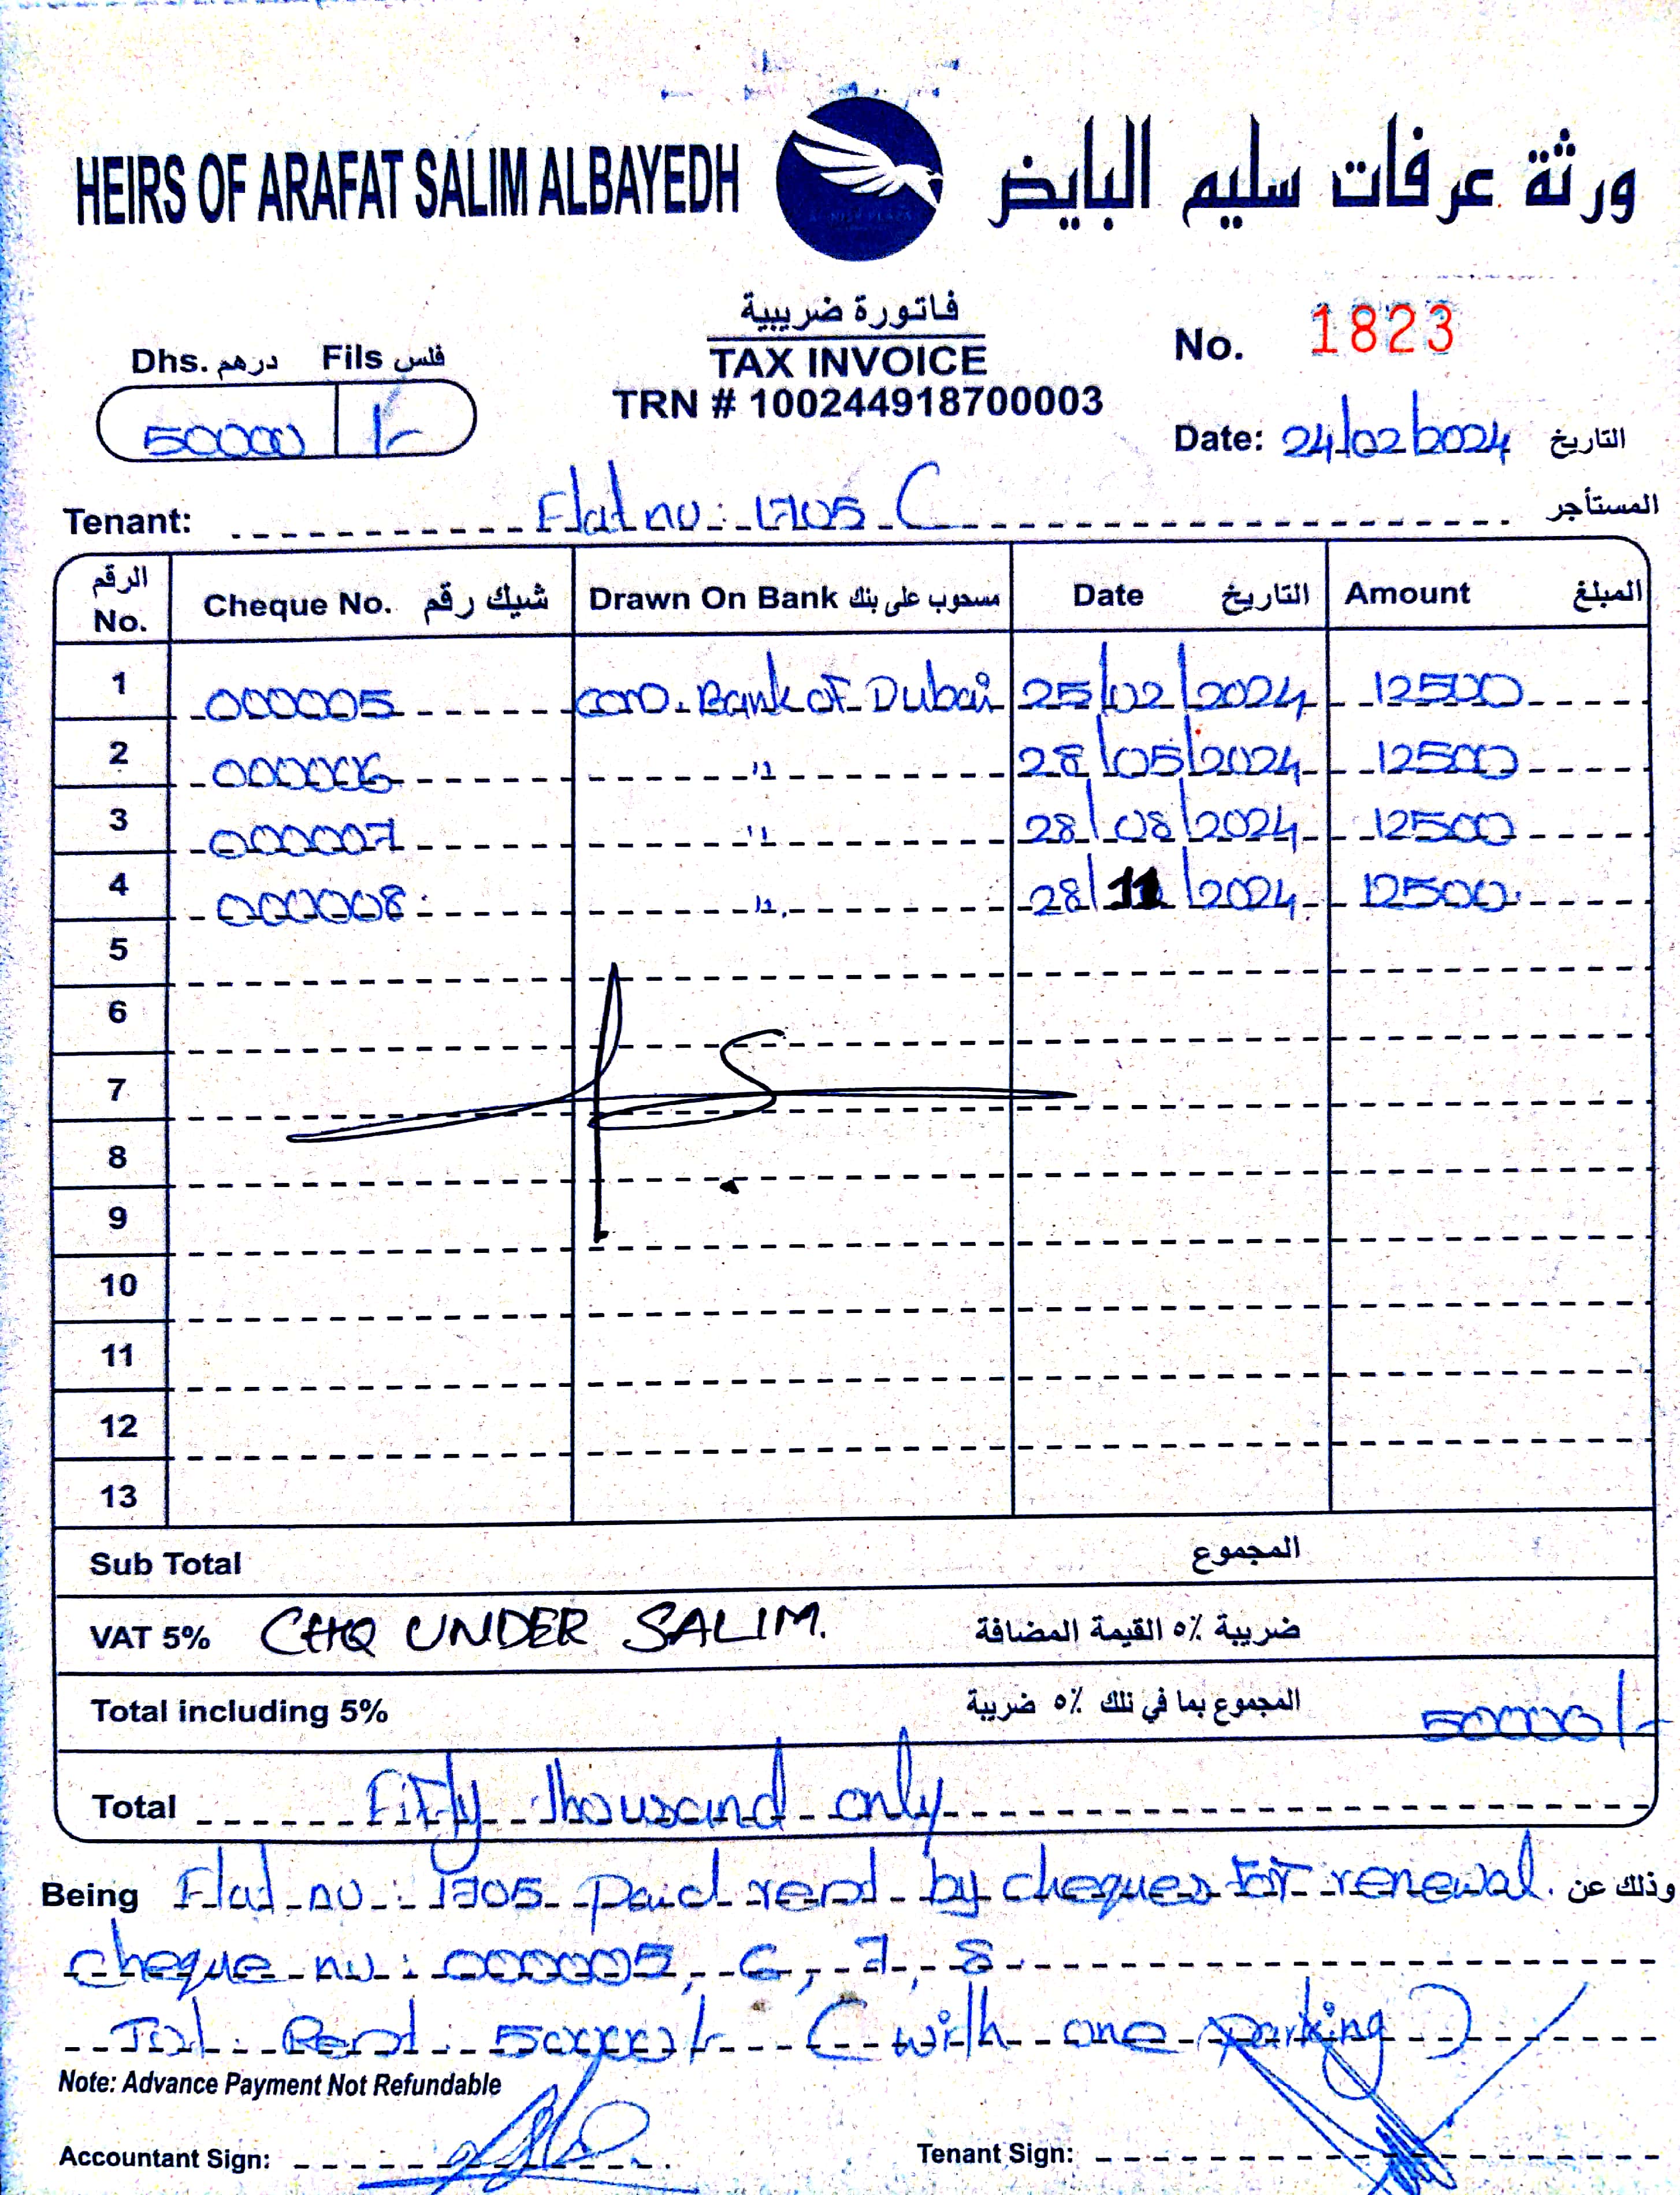 HEIRS OF ARAFAT SALIM ALBAYEDH ورثة عرفات سليم البايض
فاتورة ضريبية
TAX INVOICE
TRN # 100244918700003
Dhs. درهم Fils فلس
50000 /-
No. 1823
Date: 24/02/2024 التاريخ
Tenant: Flat no: 1705 C المستأجر
الرقم No. Cheque No. شيك رقم Drawn On Bank مسحوب على بنك Date التاريخ Amount المبلغ
1 000005 com. Bank of Dubai 25/02/2024 12500
2 000006 " 28/05/2024 12500
3 000007 " 28/08/2024 12500
4 000008 " 28/11/2024 12500
5
6
7
8
9
10
11
12
13
Sub Total المجموع
VAT 5% CHQ UNDER SALIM. ضريبة ٥٪ القيمة المضافة
Total including 5% المجموع بما في تلك ٥٪ ضريبة 50000/-
Total Fifty thousand only
Being Flat no: 1705 paid rent by cheques for renewal. وذلك عن
cheque no: 000005, 6, 7, 8.
Tot. Rent: 50000/- (with one parking)
Note: Advance Payment Not Refundable
Accountant Sign: Tenant Sign: